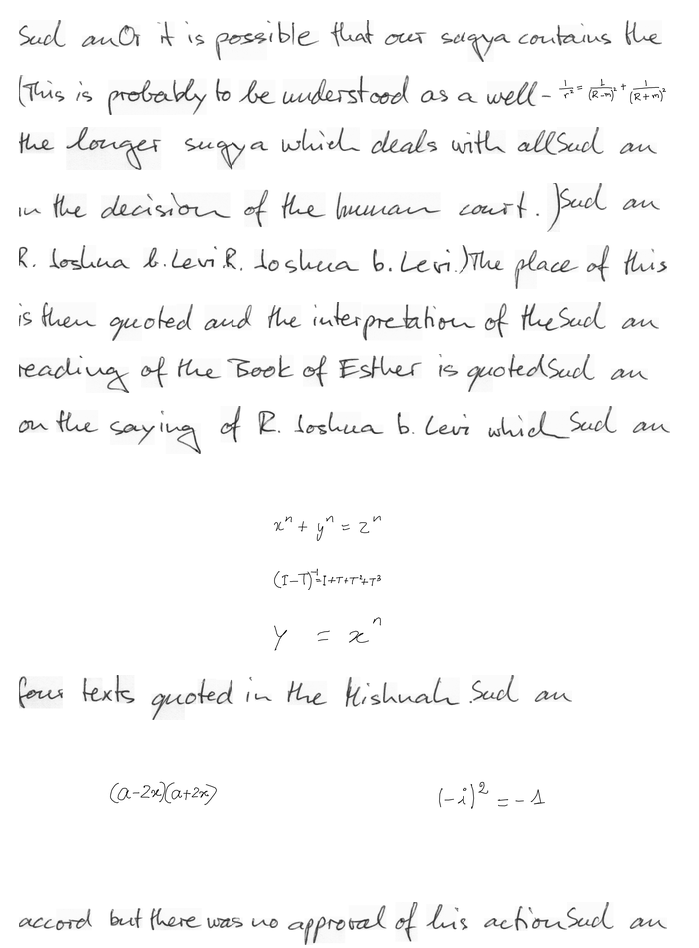 Sud anOr it is possible that our sugya contains the
(This is probably to be understood as a well- 1/r² = 1/(R-m)² + 1/(R+m)²
the longer sugya which deals with allSud an
in the decision of the human court.)Sud an
R. Joshua b. Levi R. Joshua b. Levi.)The place of this
is then quoted and the interpretation of theSud an
reading of the Book of Esther is quotedSud an
on the saying of R. Joshua b. Levi which Sud an
xⁿ + yⁿ = zⁿ
(I-T)⁻¹=I+T+T²+T³
y = xⁿ
four texts quoted in the Mishnah.Sud an
(a-2x)(a+2x) (-i)² = -1
accord but there was no approval of his actionSud an